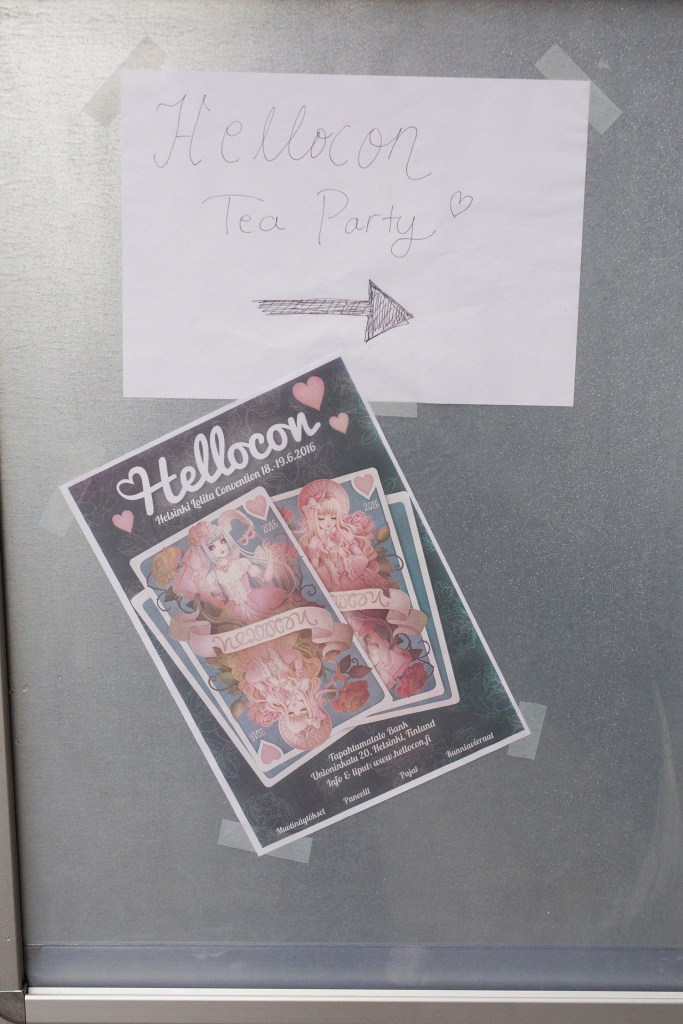 Hellocon
Tea Party
Hellocon
Helsinki Lolita Convention 18.-19.6.2016
2016
2016
Hellocon
Tapahtumatalo Bank
Unioninkatu 20, Helsinki, Finland
Info & liput: www.hellocon.fi
Muotinäytökset Paneelit Pajat Kunniavieraat